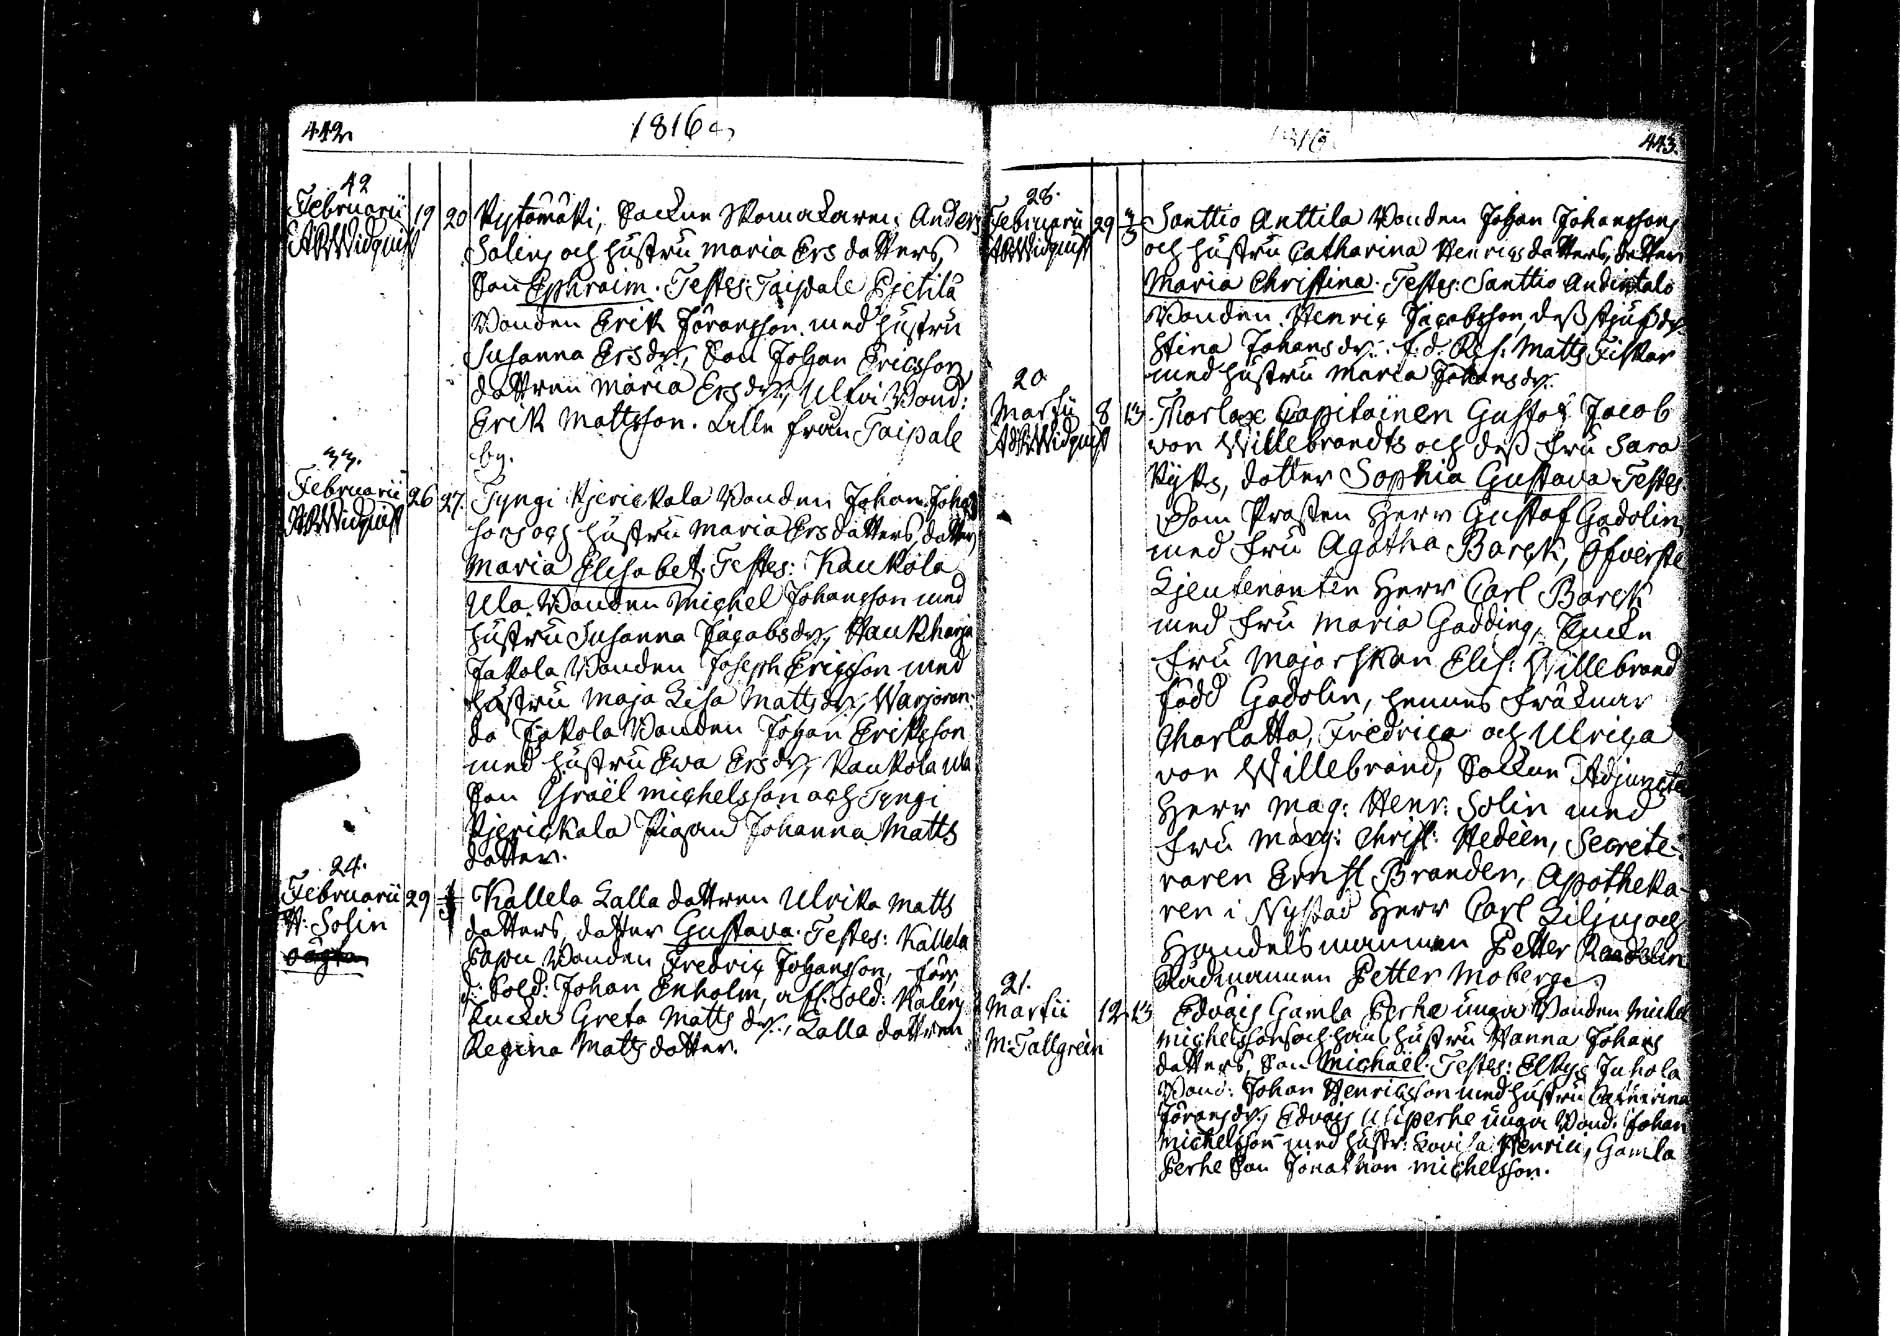 442
1816
42
Februarii 19 20 Kytömäki, Sockne Skomakaren Anders
A R Widquist
Salins och hustru Maria Ersdotters,
Son Ephraim. Testes: Taipale Ejetilä
Bonden Erik Göransson med hustru
Susanna Ersdr, Son Johan Ericsson
dottren Maria Ersdr, Ulfvi Bond:
Erik Mattsson. Lille från Taipale
by.
33.
Februarii 26 27. Tyngi Kjerickala Bonden Johan Johans
A R Widquist
sons och hustru Maria Ersdotters, dotter
Maria Elisabet. Testes: Kaukola
Ula Bonden Michel Johansson med
hustru Susanna Jacobsdr, Haukharja
Jakola Bonden Joseph Ericsson med
hustru Maja Lisa Mattsdr, Warjoran-
da Jakola Bonden Johan Eriksson
med hustru Ewa Ersdr, Kaukola Ula
Son Israël Michelsson och Tyngi
Kjerickala Pigan Johanna Matts
dotter.
24.
Februarii 29 1/3 Kallela Lalla dottren Ulrika Matts
H: Solin
dotters, dotter Gustava. Testes: Kallela
Bonden Fredric Johansson, förr
d: Sold: Johan Enholm, afsk. Sold:
Enckia Greta Matts dr, Lalla dottren
Regina Mattsdotter.
1816
443.
28.
Februarii 29 3/3 Santtio Anttila Bonden Johan Johanssons
A R Widquist
och hustru Catharina Henrics dotters, dotter
Maria Christina. Testes: Santtio Andintalo
Bonden Henric Jacobsson, dess stjufdr
Stina Johansdr. f:d: Res: Matts Fiskar
med hustru Maria Johansdr.
20
Martii 8 13. Tharlax Capitainen Gustaf Jacob
AdR Widquist
von Willebrandts och dess Fru Sara
Kyks, dotter Sophia Gustava. Testes
Dom Prosten Herr Gustaf Gadolin
med Fru Agatha Barck, Öfverste
Ljeutenanten Herr Carl Barck
med Fru Maria Gadding, Encke
Fru Majorskan Elis: Willebrand
född Gadolin, hennes Fröknar
Charlotta, Fredrica och Ulrica
von Willebrand, Sockne Adjuncten
Herr Mag: Henr: Solin med
Fru Marg: Christ: Hedeen, Secrete-
raren Ernst Brander, Apotheka-
ren i Nystad Herr Carl Liljus och
Handelsmannen Petter Raedelin
Rådmannen Petter Moberg.
21.
Martii 12 13 Edväis Gamla Perhe unga Bonden Michel
M: Tallgren
Michelssons och hans hustru Hanna Johans
dotters, Son Michaël. Testes: Elkys Juhola
Bond: Johan Henricsson med hustru Catherina
Göransdr, Edväis Uliperhe unga Bond: Johan
Michelsson med hustr: Lovisa Henrici, Gamla
Perhe Son Jonathan Michelsson.